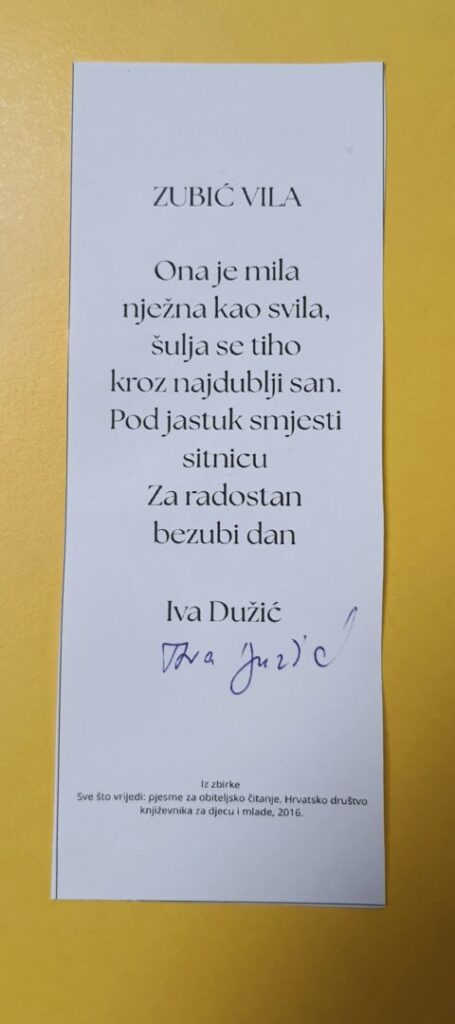 ZUBIĆ VILA
Ona je mila
nježna kao svila,
šulja se tiho
kroz najdublji san.
Pod jastuk smjesti
sitnicu
Za radostan
bezubi dan
Iva Dužić
Iva Dužić
Iz zbirke
Sve što vrijedi: pjesme za obiteljsko čitanje, Hrvatsko društvo
književnika za djecu i mlade, 2016.